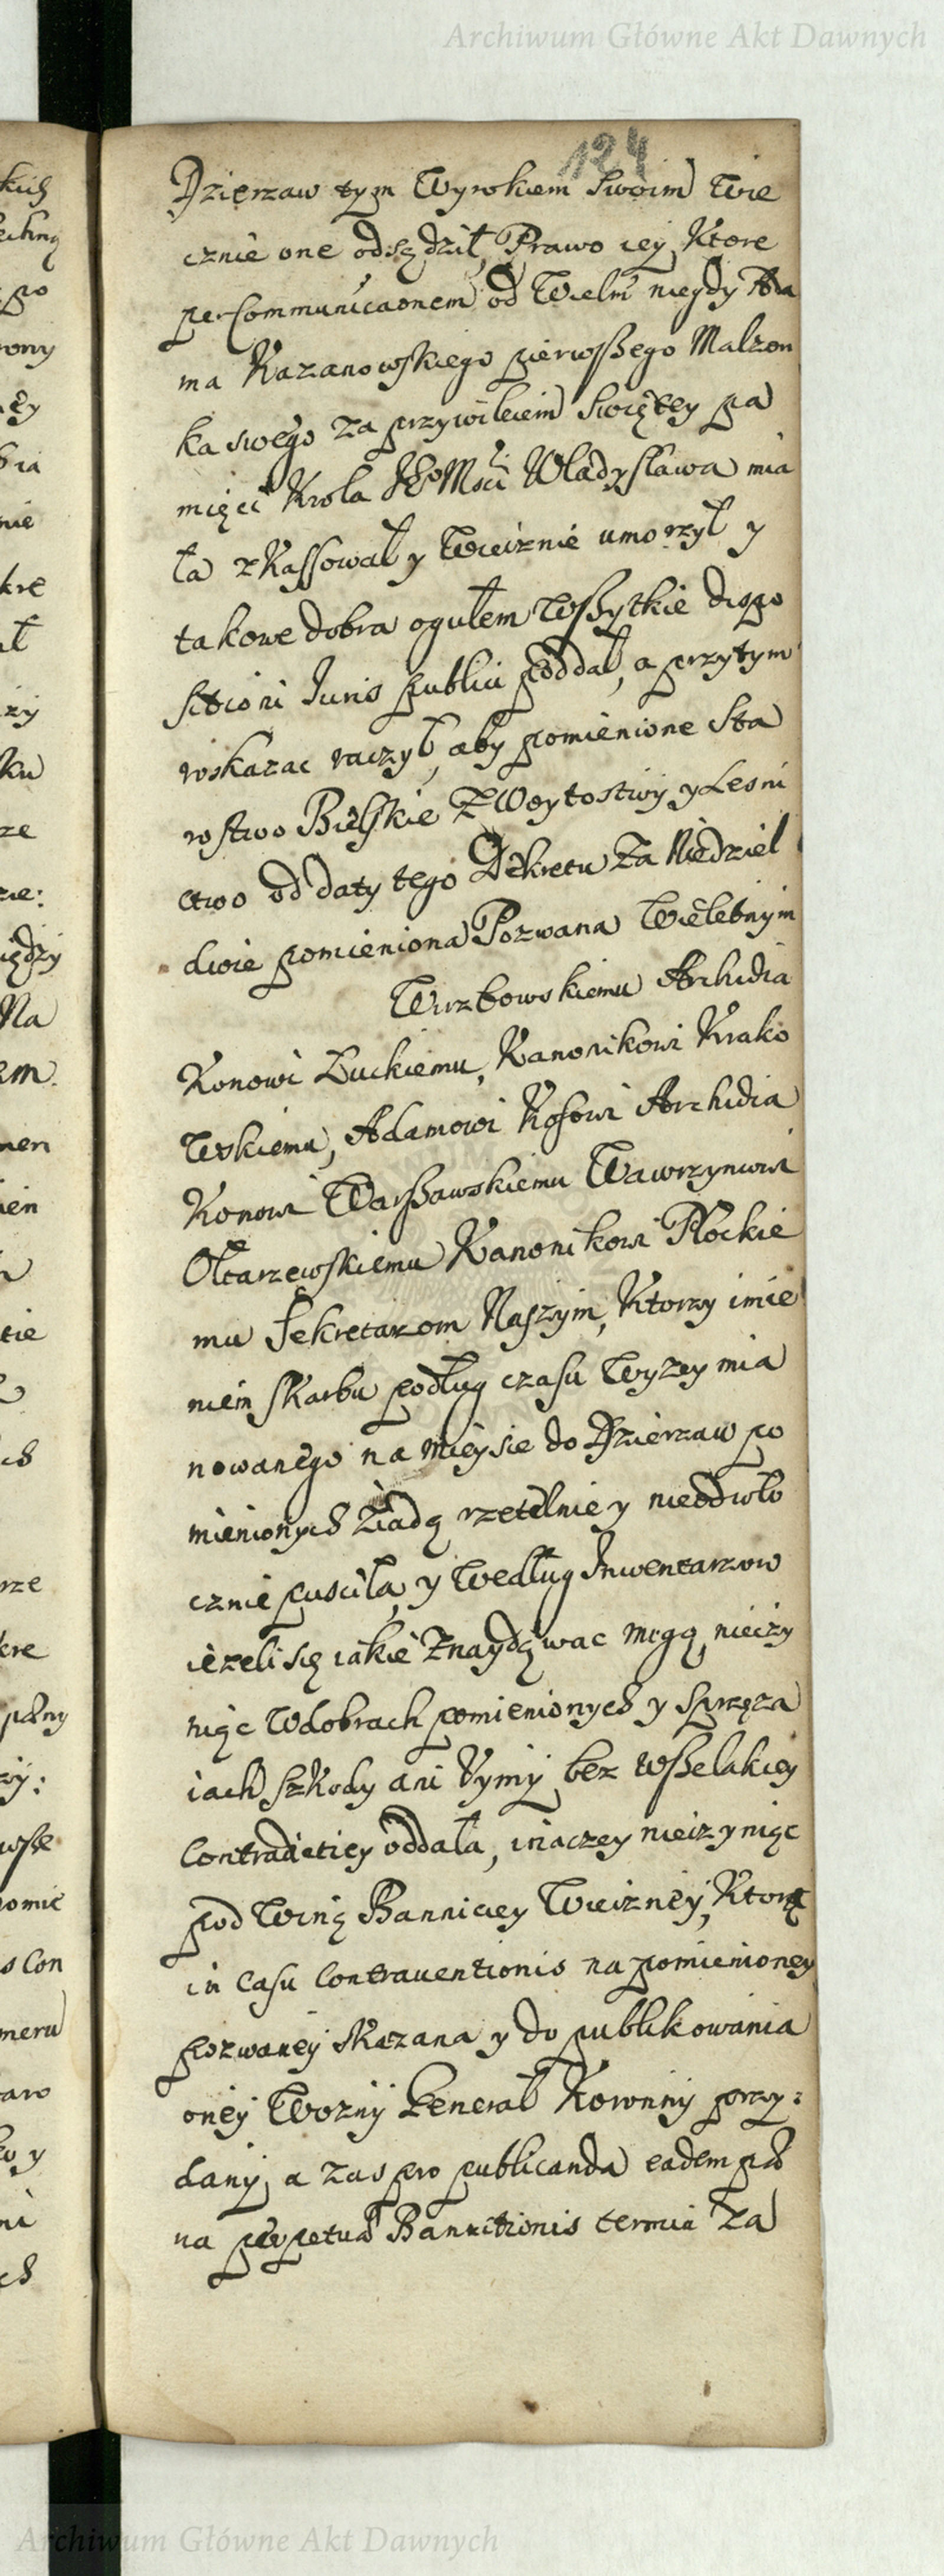 Archiwum Główne Akt Dawnych
124
Dzierzaw tym Wyrokiem Swoim Wie
cznie one odsądził, Prawo iey, Ktore
per Communicaonem od Wielm niegdy Ada
ma Kazanowskiego pierwßego Malzon
ka swego za przywileiem Swiętey pa
mięci Krola JEo Msci Władysława mia
ła zKassował y Wiecznie umorzył y
takowe dobra ogułem Wßytkie dispo
sitioni Iuris publici poddał, a przytym
wskazac raczył, aby pomienione Sta
rostwo Bielskie z Woytostwy y Lesni
ctwo od daty tego Dekretu za Niedziel
dwie pomieniona Pozwana Wielebnym
Wierzbowskiemu Archidia
Konowi Łuckiemu, Kanonikowi Krako
Wskiemu, Adamowi Kosowi Archidia
Konowi Warßawskiemu Wawrzyncowi
Ołtarzewskiemu Kanonikowi Płockie
mu Sekretarzom Naszym, Ktorzy imie
niem Skarbu podług czasu Wyzey mia
nowanego na mieysce do Dzierzaw po
mienionych Ziadą rzetelnie y nieodwło
cznie pusciła, y Według Inwentarzow
iezeli się iakie Znaydowac mogą, nieczy
niąc Wdobrach pomienionych y Sprzęza
iach Szkody ani Vymy, bez wßelakiey
Contradictiey oddała, inaczey nieczyniąc
pod Winą Banniciey Wieczney, Ktorą
in Casu Contrauentionis na pomienioney
pozwaney skazana y do publikowania
oney Wozny Generał Koronny przy:
dany, a zas pro publicanda eadem pæ
na perpetuæ Bannitionis termin Za
Archiwum Główne Akt Dawnych